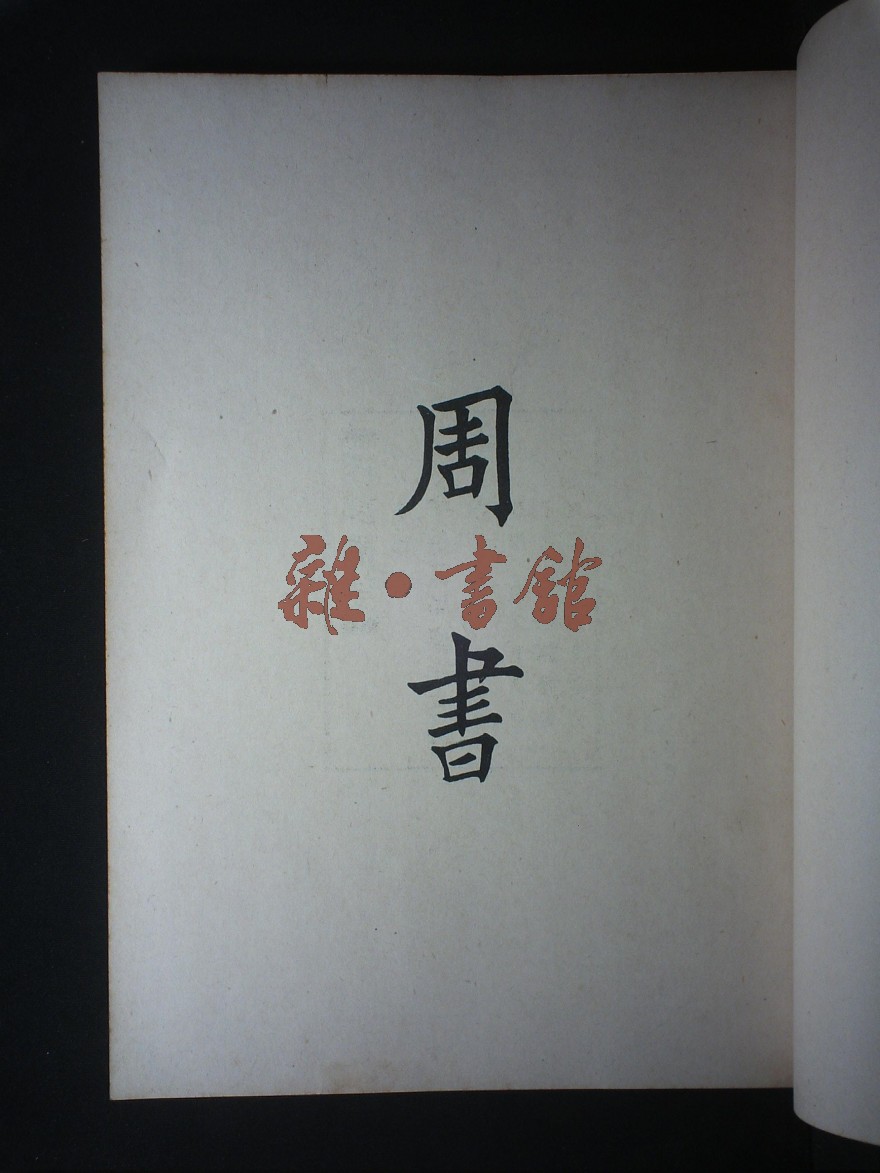 周書
雜·書館